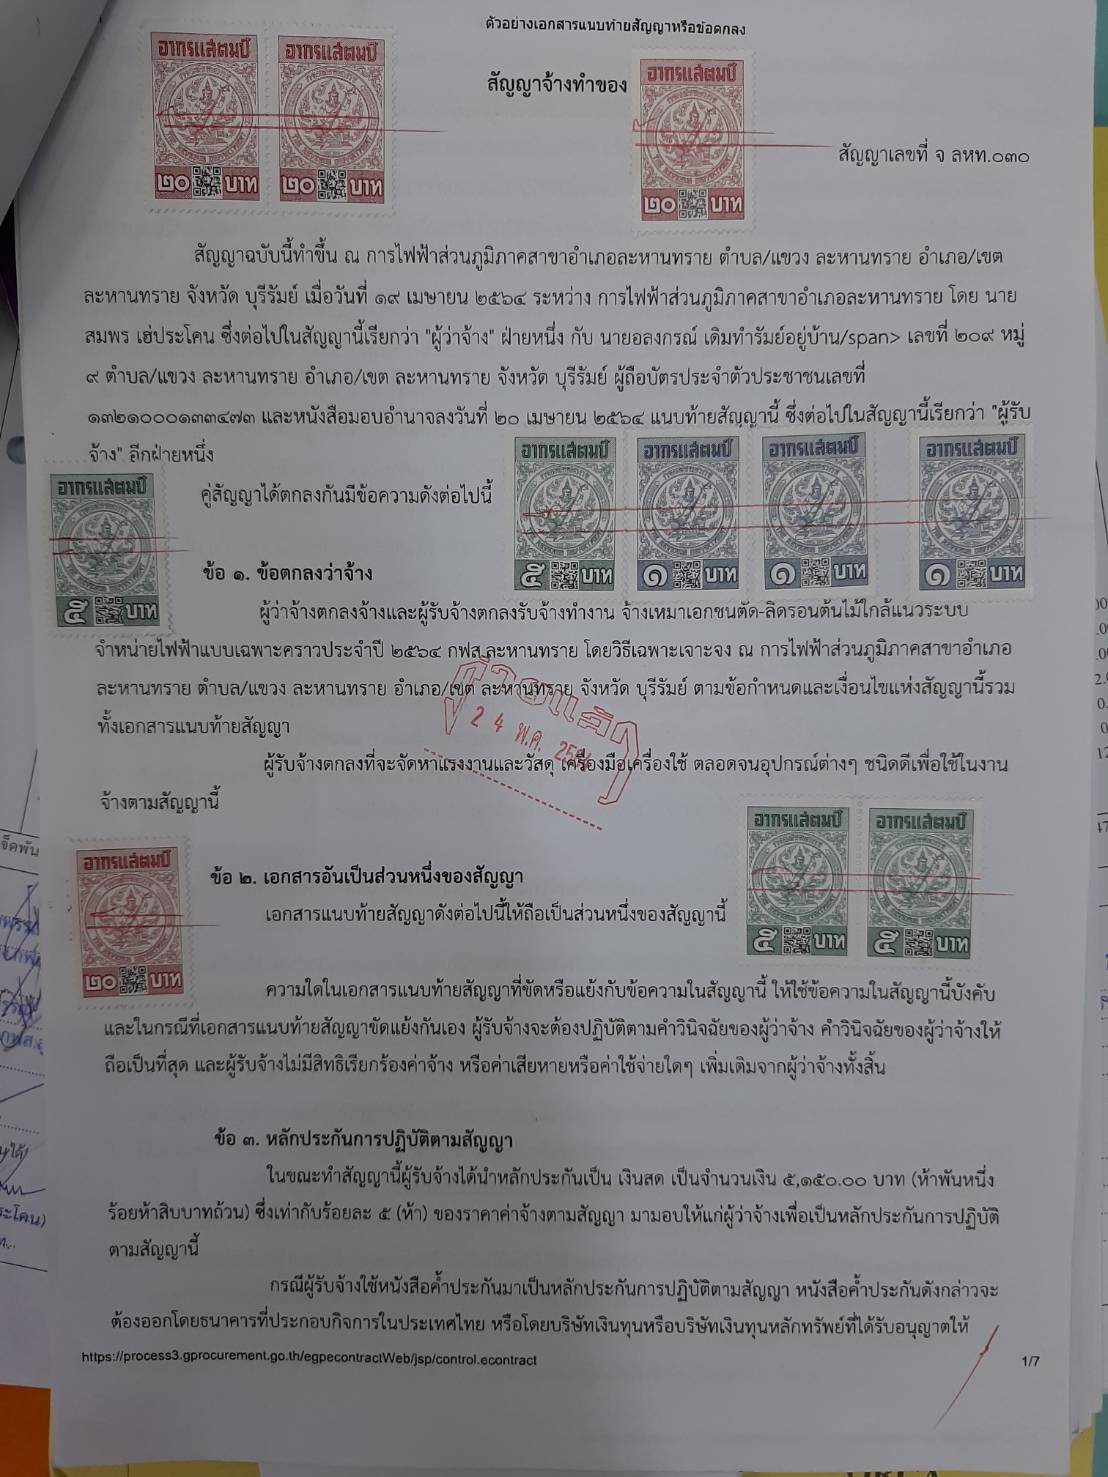 ตัวอย่างเอกสารแนบท้ายสัญญาหรือข้อตกลง
อากรแสตมป์ อากรแสตมป์ อากรแสตมป์
สัญญาจ้างทำของ
สัญญาเลขที่ จ ลหท.๐๓๐
๒๐ บาท ๒๐ บาท ๒๐ บาท
สัญญาฉบับนี้ทำขึ้น ณ การไฟฟ้าส่วนภูมิภาคสาขาอำเภอละหานทราย ตำบล/แขวง ละหานทราย อำเภอ/เขต
ละหานทราย จังหวัด บุรีรัมย์ เมื่อวันที่ ๑๙ เมษายน ๒๕๖๔ ระหว่าง การไฟฟ้าส่วนภูมิภาคสาขาอำเภอละหานทราย โดย นาย
สมพร เฮ่ประโคน ซึ่งต่อไปในสัญญานี้เรียกว่า "ผู้ว่าจ้าง" ฝ่ายหนึ่ง กับ นายอลงกรณ์ เดิมทำรัมย์อยู่บ้าน/span> เลขที่ ๒๐๙ หมู่
๙ ตำบล/แขวง ละหานทราย อำเภอ/เขต ละหานทราย จังหวัด บุรีรัมย์ ผู้ถือบัตรประจำตัวประชาชนเลขที่
๑๓๒๑๐๐๐๑๓๓๔๗๓ และหนังสือมอบอำนาจลงวันที่ ๒๐ เมษายน ๒๕๖๔ แนบท้ายสัญญานี้ ซึ่งต่อไปในสัญญานี้เรียกว่า "ผู้รับ
จ้าง" อีกฝ่ายหนึ่ง
อากรแสตมป์ อากรแสตมป์ อากรแสตมป์ อากรแสตมป์
อากรแสตมป์
คู่สัญญาได้ตกลงกันมีข้อความดังต่อไปนี้
ข้อ ๑. ข้อตกลงว่าจ้าง
๕ บาท ๑ บาท ๑ บาท ๑ บาท
๕ บาท
ผู้ว่าจ้างตกลงจ้างและผู้รับจ้างตกลงรับจ้างทำงาน จ้างเหมาเอกชนตัด-ลิดรอนต้นไม้ใกล้แนวระบบ
จำหน่ายไฟฟ้าแบบเฉพาะคราวประจำปี ๒๕๖๔ กฟส.ละหานทราย โดยวิธีเฉพาะเจาะจง ณ การไฟฟ้าส่วนภูมิภาคสาขาอำเภอ
ละหานทราย ตำบล/แขวง ละหานทราย อำเภอ/เขต ละหานทราย จังหวัด บุรีรัมย์ ตามข้อกำหนดและเงื่อนไขแห่งสัญญานี้รวม
ทั้งเอกสารแนบท้ายสัญญา
จ่ายแล้ว
2 4 พ.ค. 2564
ผู้รับจ้างตกลงที่จะจัดหาแรงงานและวัสดุ เครื่องมือเครื่องใช้ ตลอดจนอุปกรณ์ต่างๆ ชนิดดีเพื่อใช้ในงาน
จ้างตามสัญญานี้
อากรแสตมป์ อากรแสตมป์
อากรแสตมป์
ข้อ ๒. เอกสารอันเป็นส่วนหนึ่งของสัญญา
เอกสารแนบท้ายสัญญาดังต่อไปนี้ให้ถือเป็นส่วนหนึ่งของสัญญานี้
๕ บาท ๕ บาท
๒๐ บาท
ความใดในเอกสารแนบท้ายสัญญาที่ขัดหรือแย้งกับข้อความในสัญญานี้ ให้ใช้ข้อความในสัญญานี้บังคับ
และในกรณีที่เอกสารแนบท้ายสัญญาขัดแย้งกันเอง ผู้รับจ้างจะต้องปฏิบัติตามคำวินิจฉัยของผู้ว่าจ้าง คำวินิจฉัยของผู้ว่าจ้างให้
ถือเป็นที่สุด และผู้รับจ้างไม่มีสิทธิเรียกร้องค่าจ้าง หรือค่าเสียหายหรือค่าใช้จ่ายใดๆ เพิ่มเติมจากผู้ว่าจ้างทั้งสิ้น
ข้อ ๓. หลักประกันการปฏิบัติตามสัญญา
ในขณะทำสัญญานี้ผู้รับจ้างได้นำหลักประกันเป็น เงินสด เป็นจำนวนเงิน ๕,๑๕๐.๐๐ บาท (ห้าพันหนึ่ง
ร้อยห้าสิบบาทถ้วน) ซึ่งเท่ากับร้อยละ ๕ (ห้า) ของราคาค่าจ้างตามสัญญา มามอบให้แก่ผู้ว่าจ้างเพื่อเป็นหลักประกันการปฏิบัติ
ตามสัญญานี้
กรณีผู้รับจ้างใช้หนังสือค้ำประกันมาเป็นหลักประกันการปฏิบัติตามสัญญา หนังสือค้ำประกันดังกล่าวจะ
ต้องออกโดยธนาคารที่ประกอบกิจการในประเทศไทย หรือโดยบริษัทเงินทุนหรือบริษัทเงินทุนหลักทรัพย์ที่ได้รับอนุญาตให้
https://process3.gprocurement.go.th/egpecontractWeb/jsp/control.econtract
1/7